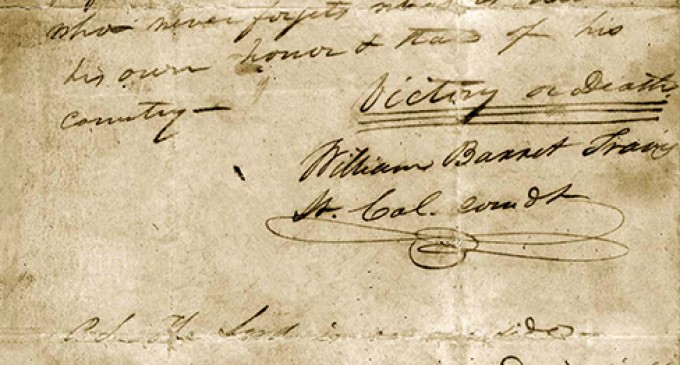 who never forgets what is due
his own honor & that of his
country—
Victory or Death
William Barret Travis
Lt. Col. comdt
P.S. The Lord is on our side